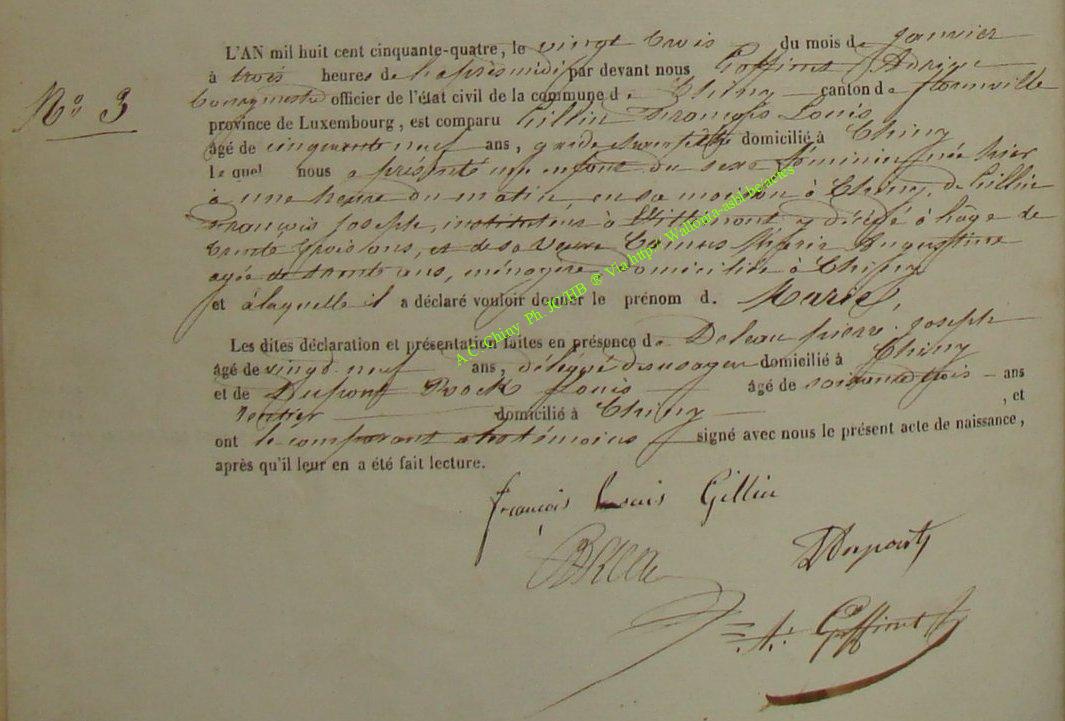 L'AN mil huit cent cinquante-quatre, le vingt trois du mois de janvier
N° 3
à trois heures de l'après midi par devant nous Goffinet Adrien
Bourgmestre officier de l'état civil de la commune de Chiny canton de florenville
province de Luxembourg, est comparu Gillin François Louis
âgé de cinquante neuf ans, garde domicilié à Chiny
lequel nous a présenté un enfant du sexe féminin née hier
à une heure du matin, en sa maison à Chiny, de Gillin
François Joseph, instituteur à y décédé à l'âge de
trente trois ans, et de sa veuve Camus Marie Augustine
agée de trente ans, ménagère domiciliée à Chiny
et à laquelle il a déclaré vouloir donner le prénom d. Marie,
Les dites déclaration et présentation faites en présence de Deleau pierre joseph
âgé de vingt neuf ans, délégué domicilié à Chiny
et de Dupont Rock Louis âgé de soixante trois ans
rentier domicilié à Chiny , et
ont le comparant et les témoins signé avec nous le présent acte de naissance,
après qu'il leur en a été fait lecture.
françois Louis Gillin
Dupont
A. Goffinet
A.C. Chiny Ph. JC HB ® Via http://Wallonia-asbl.be/actes